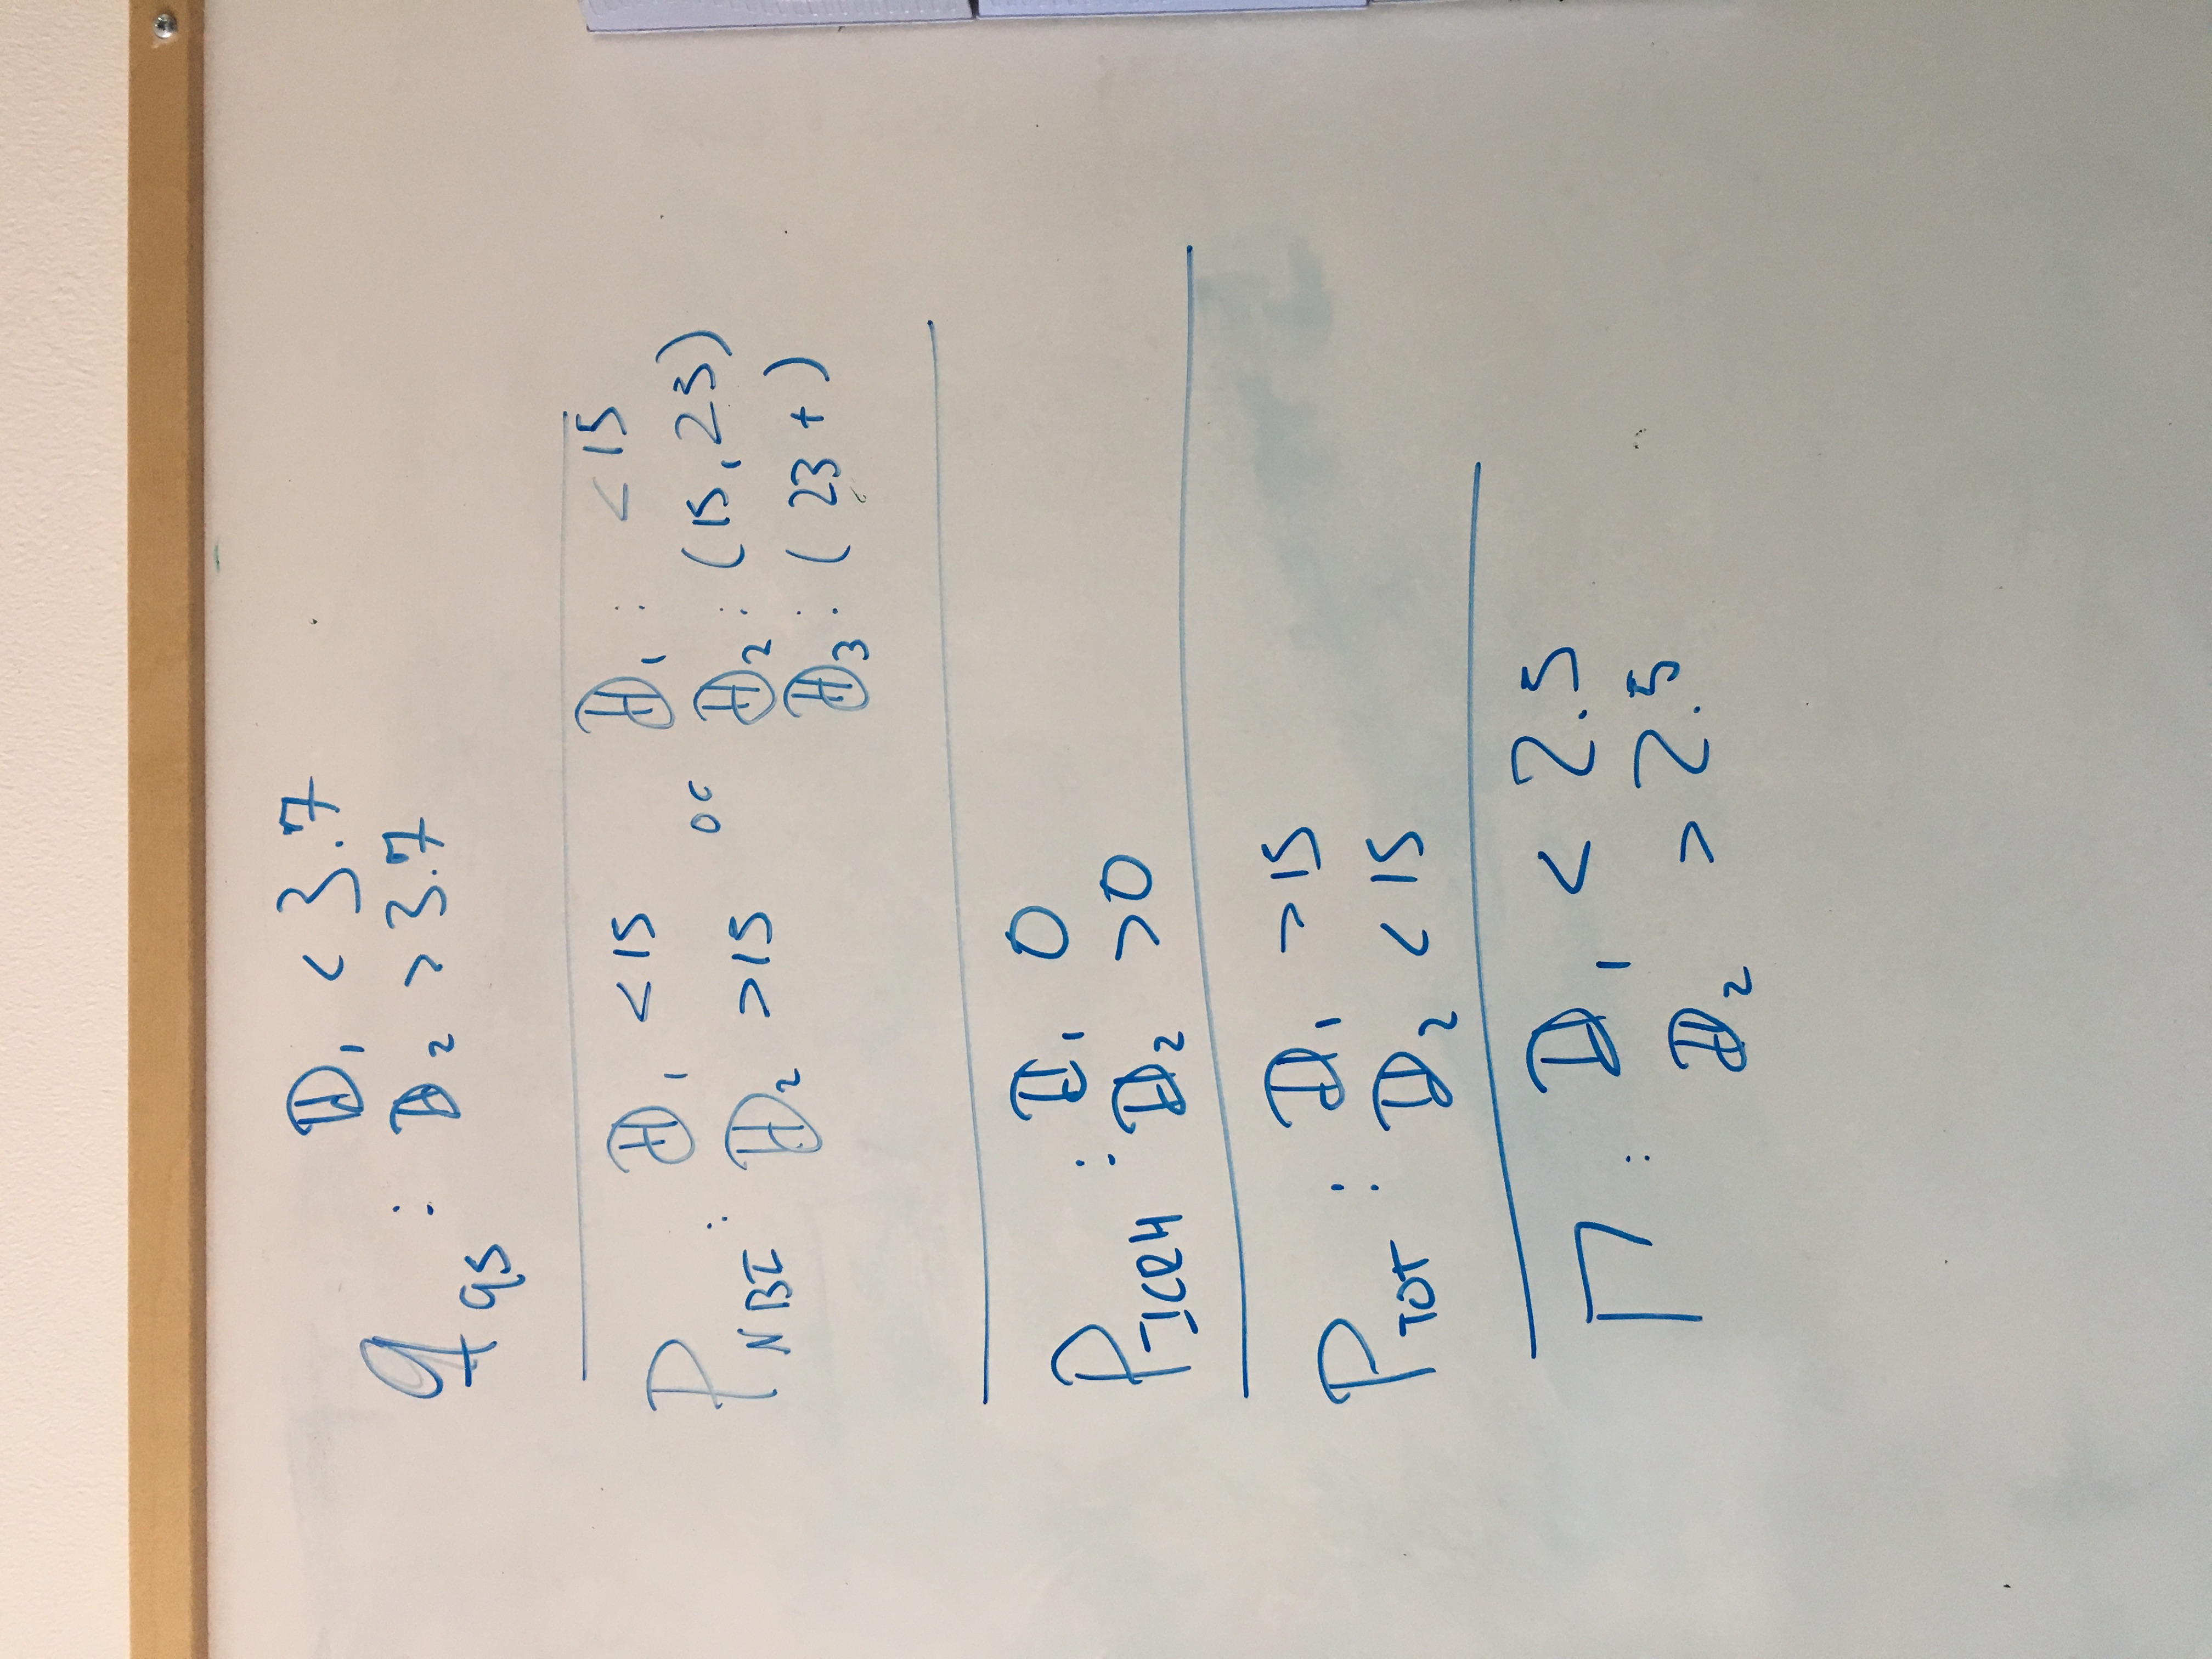 q_95 : 𝔻₁ < 3.7
𝔻₂ > 3.7
P_NBI : 𝔻₁ < 15
𝔻₂ > 15
or
𝔻₁ : < 15
𝔻₂ : (15, 23)
𝔻₃ : (23 +)
P_ICRH : 𝔻₁ 0
𝔻₂ > 0
P_TOT : 𝔻₁ > 15
𝔻₂ < 15
Γ : 𝔻₁ < 2.5
𝔻₂ > 2.5